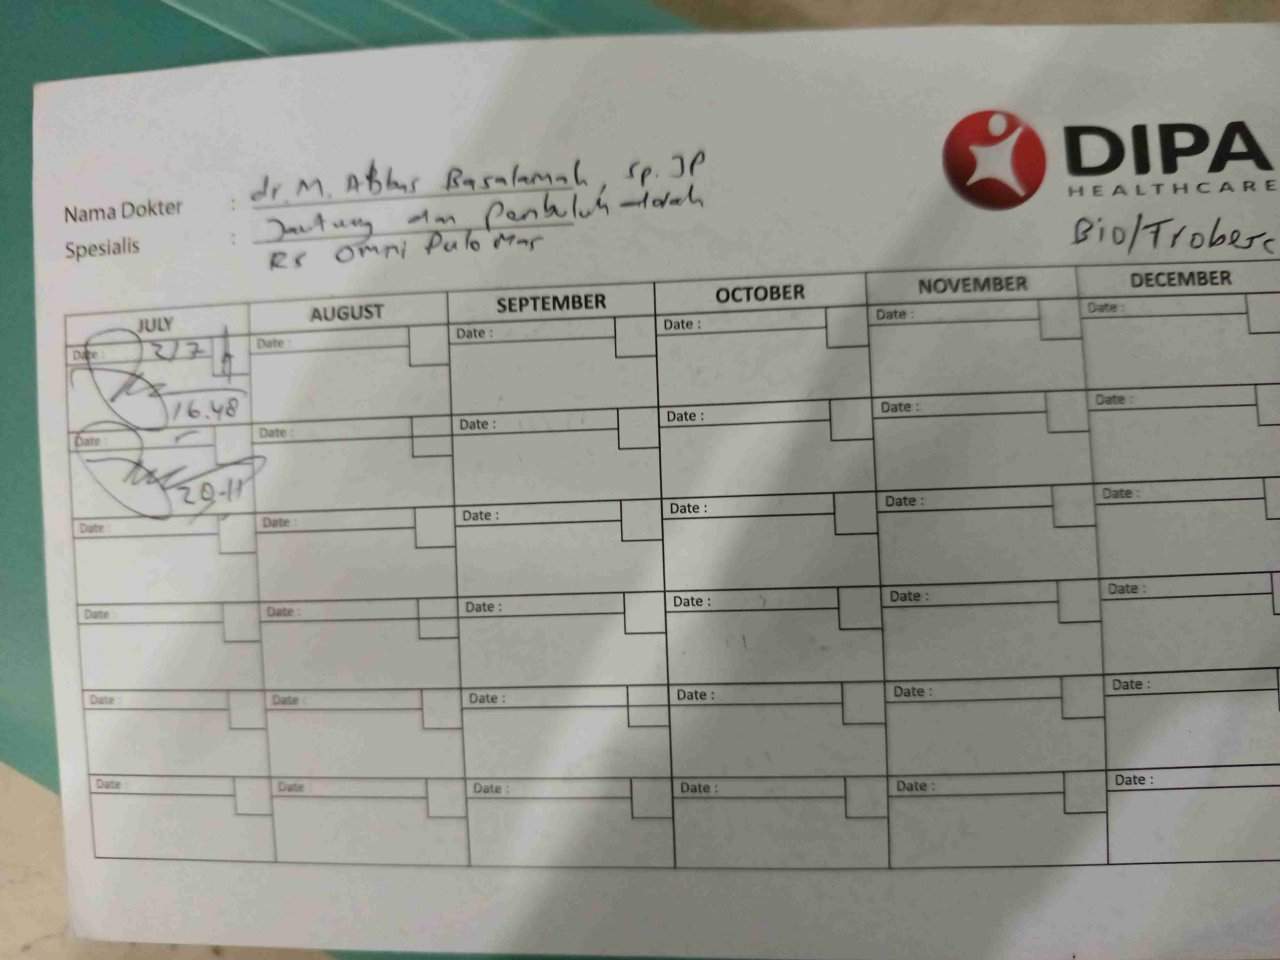 DIPA
HEALTHCARE
Nama Dokter : dr. M. Abbas Basalamah, Sp. JP
Spesialis : Jantung dan Pembuluh darah
RS Omni Pulo Mas
Bio/Troberc
JULY AUGUST SEPTEMBER OCTOBER NOVEMBER DECEMBER
Date : 2/7 Date : Date : Date : Date : Date :
16.48
Date : Date : Date : Date : Date : Date :
20-11
Date : Date : Date : Date : Date : Date :
Date : Date : Date : Date : Date : Date :
Date : Date : Date : Date : Date : Date :
Date : Date : Date : Date : Date : Date :